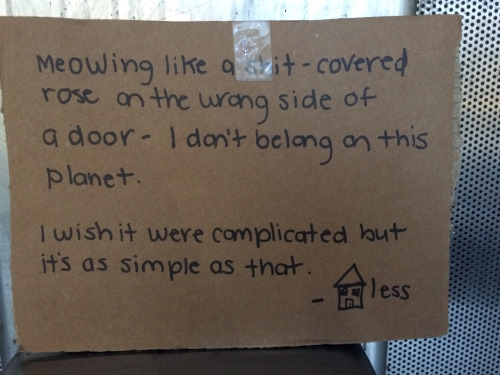 Meowing like a shit-covered
rose on the wrong side of
a door - I don't belong on this
planet.
I wish it were complicated but
it's as simple as that.
- less